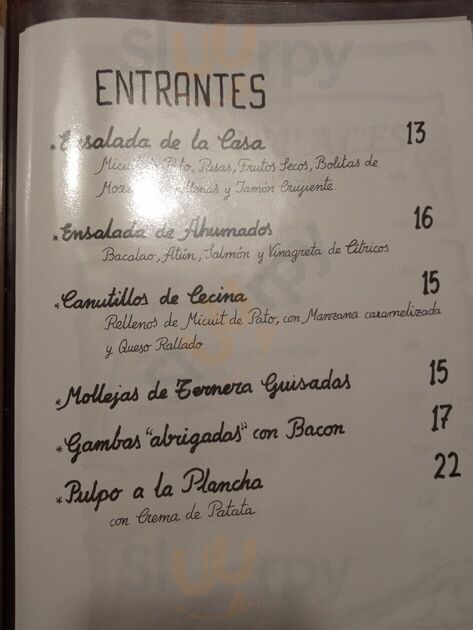 Sluurpy
ENTRANTES
*Ensalada de la Casa 13
Micuit de Pato, Pasas, Frutos Secos, Bolitas de
y Jamón Crujiente.
*Ensalada de Ahumados 16
Bacalao, Atún, Salmón y Vinagreta de Cítricos
*Canutillos de Cecina 15
Rellenos de Micuit de Pato, con Manzana caramelizada
y Queso Rallado
*Mollejas de Ternera Guisadas 15
*Gambas "abrigadas" con Bacon 17
*Pulpo a la Plancha 22
con Crema de Patata
Sluurpy